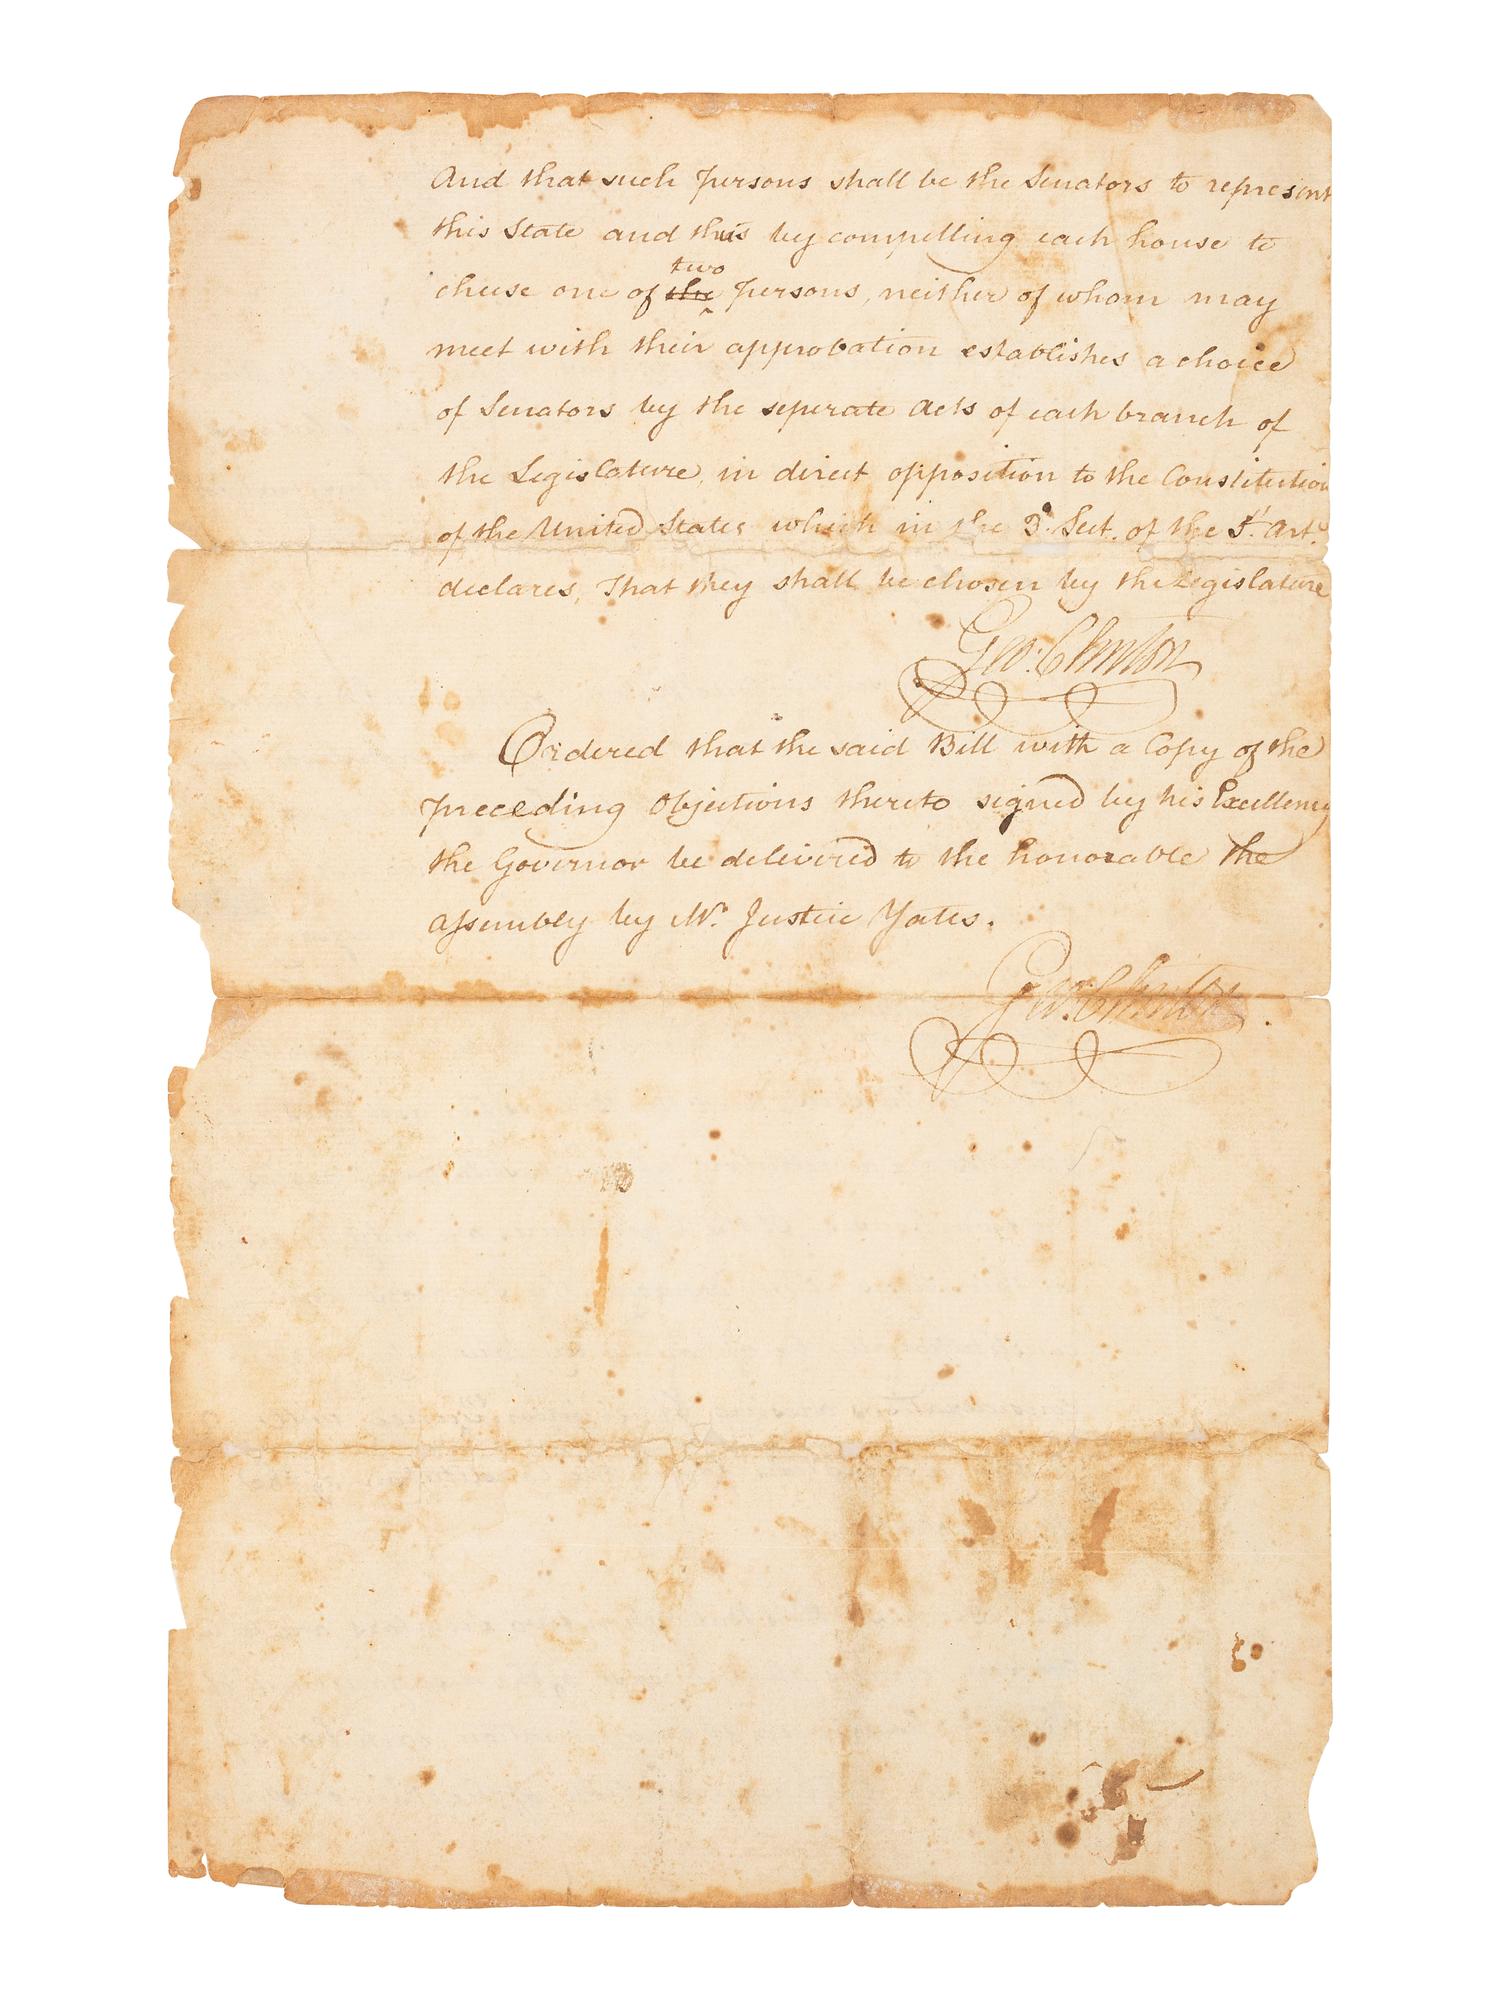 And that such persons shall be the Senators to represent
this State and thus by compelling each house to
two
chuse one of the persons, neither of whom may
meet with their approbation establishes a choice
of Senators by the seperate Acts of each branch of
the Legislature, in direct opposition to the Constitution
of the United States which in the 3d. Sect. of the 1st. Art.
declares, That they shall be chosen by the Legislature
Geo: Clinton
Ordered that the said Bill with a Copy of the
preceding Objections thereto signed by his Excellency
the Governor be delivered to the honorable the
Assembly by Mr. Justice Yates.
Geo: Clinton.